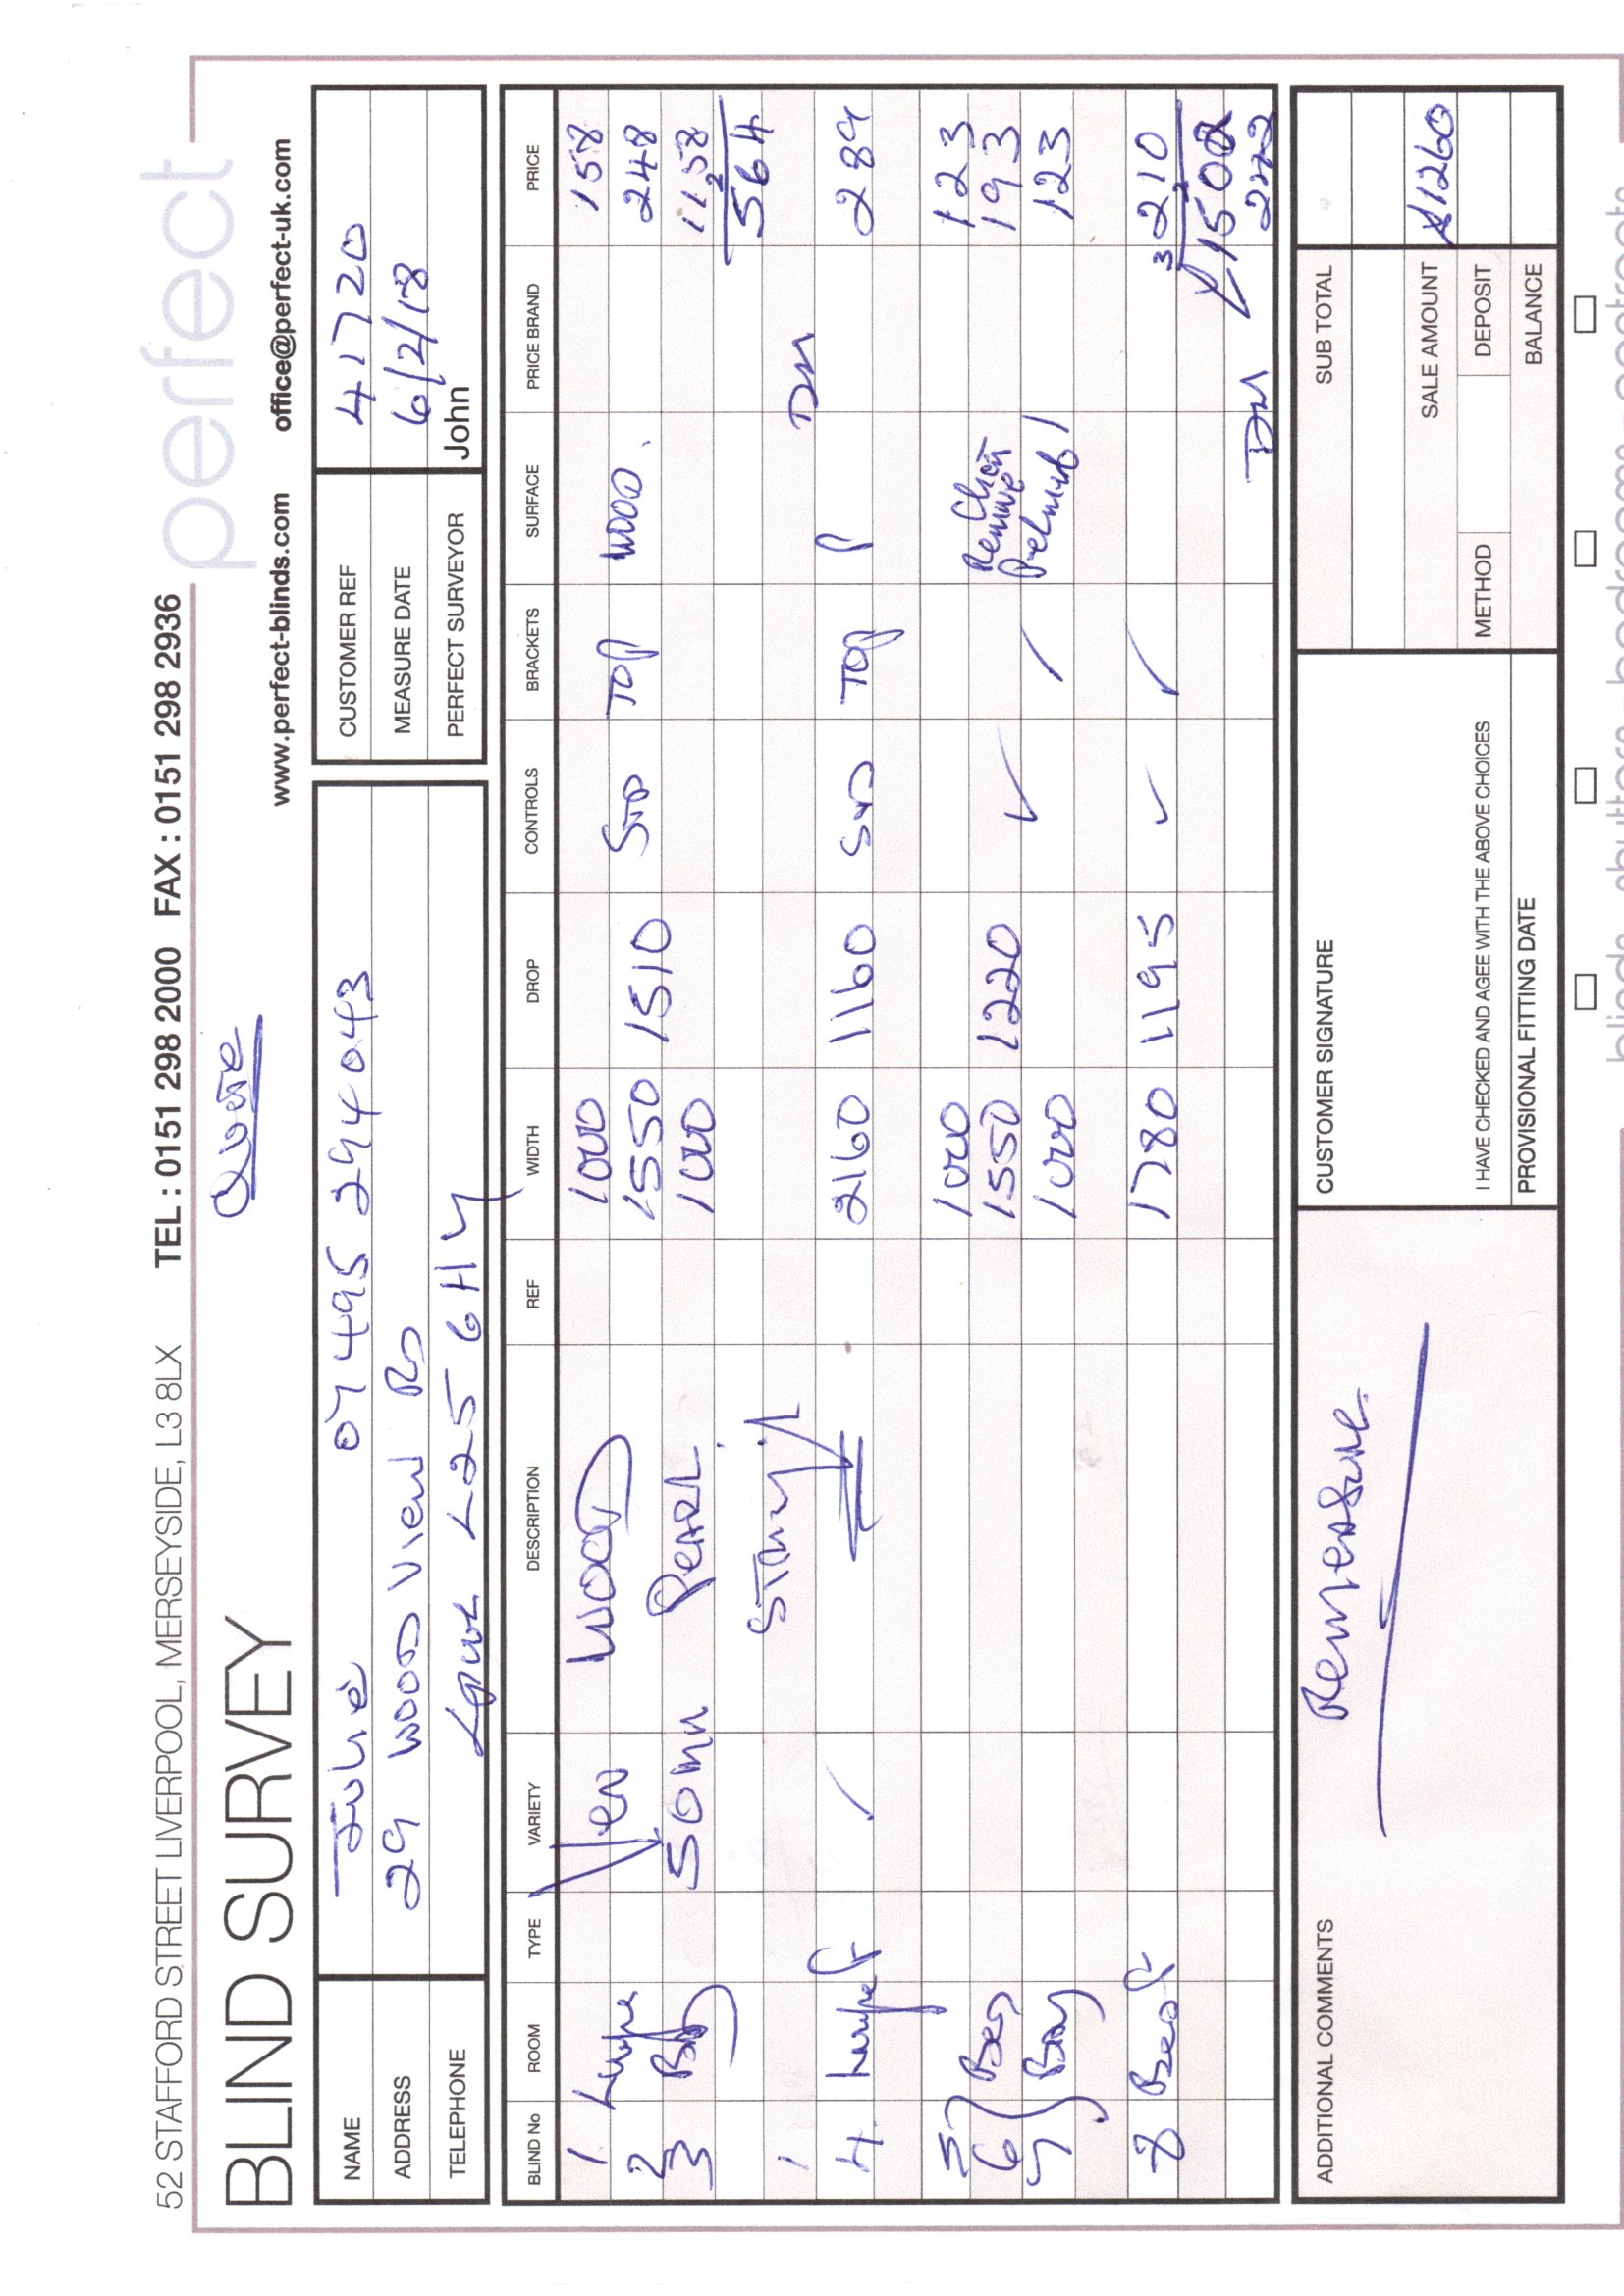 52 STAFFORD STREET LIVERPOOL, MERSEYSIDE, L3 8LX TEL : 0151 298 2000 FAX : 0151 298 2936
perfect
BLIND SURVEY
Quote
www.perfect-blinds.com office@perfect-uk.com
NAME Julie 07495 294043
ADDRESS 29 WOOD VIEW RD
TELEPHONE L25 6HY
CUSTOMER REF 41720
MEASURE DATE 6/2/18
PERFECT SURVEYOR John
BLIND No ROOM TYPE VARIETY DESCRIPTION REF WIDTH DROP CONTROLS BRACKETS SURFACE PRICE BRAND PRICE
1 Ven WOOD 1000 158
2 1550 1510 STD TOP WOOD. 248
3 Bay 50mm PEARL. 1000 158
564
String
DM
4 2160 1160 STD TOP P 289
5 1000 123
6 Bed 1550 1220 Client Remove 193
7 Bay 1000 Pelmets 123
8 Bed 1780 1195 210
£1502
DM 242
ADDITIONAL COMMENTS
Remeasure.
CUSTOMER SIGNATURE
I HAVE CHECKED AND AGREE WITH THE ABOVE CHOICES
PROVISIONAL FITTING DATE
SUB TOTAL
SALE AMOUNT £1260
METHOD DEPOSIT
BALANCE